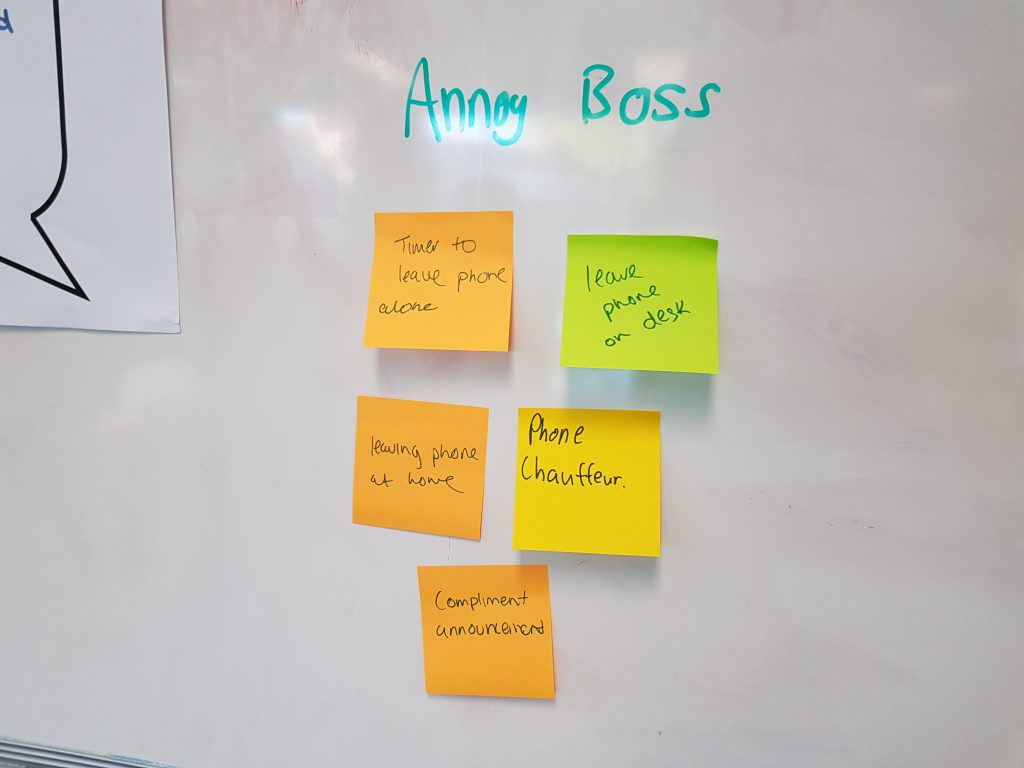 Annoy Boss
Timer to
leave phone
alone
leave
phone
on desk
leaving phone
at home
Phone
Chauffeur.
Compliment
announcement